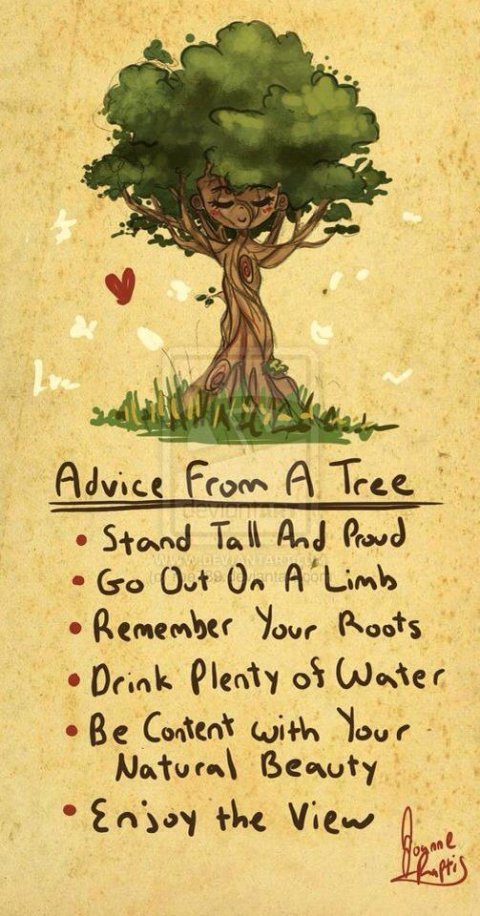 Luc
Advice From A Tree
deviantART
Stand Tall And Proud
WWW.DEVIANTART
Go Out On A Limb
Remember Your Roots
Drink Plenty of Water
Be Content with Your
Natural Beauty
Enjoy the View
Joanne
Raptis